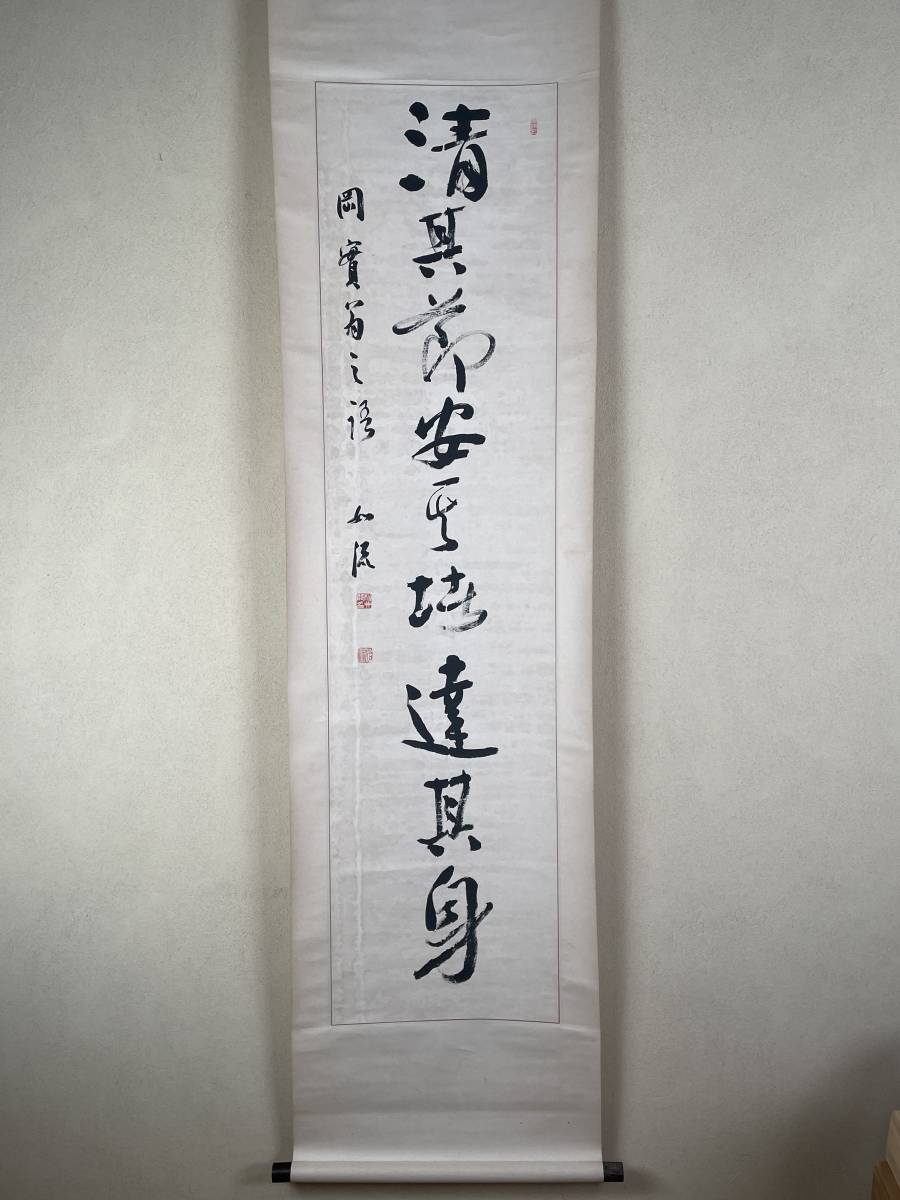 清其節安其堵達其身
岡實翁之語 如流